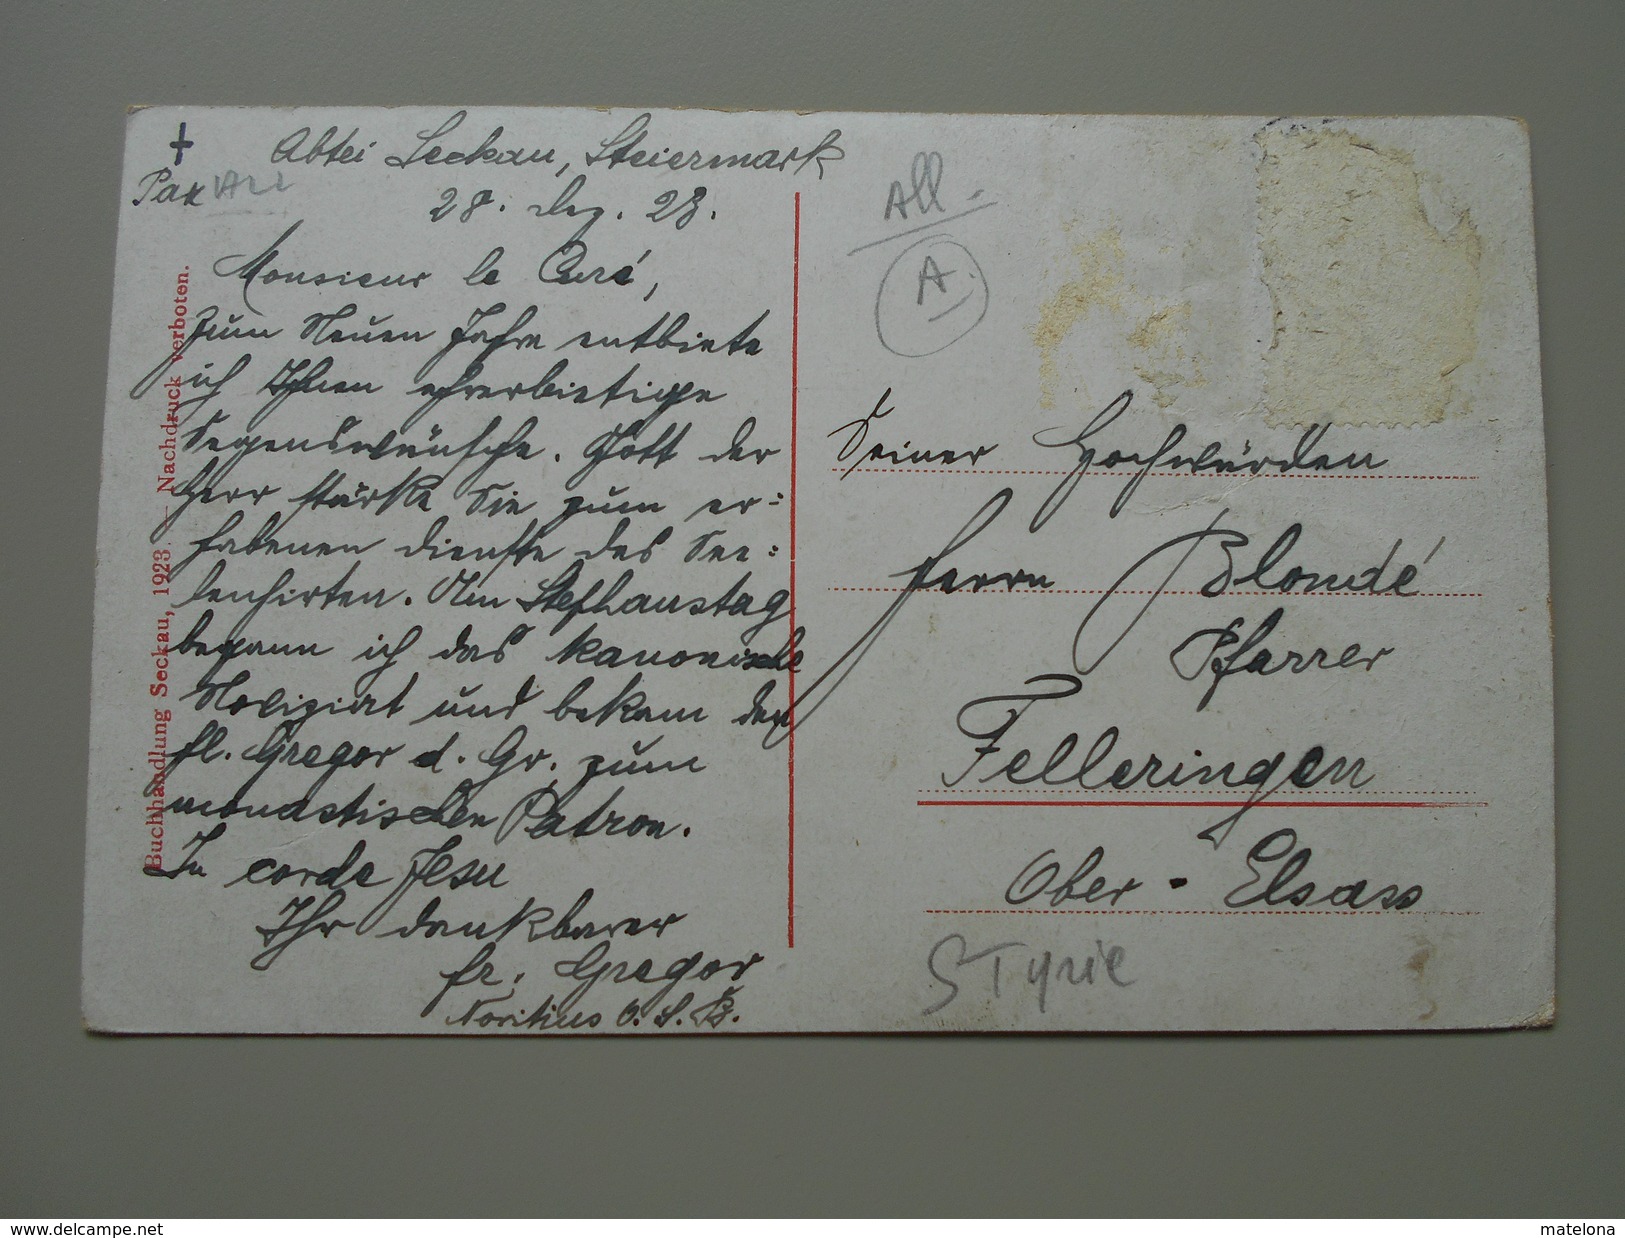 +
Pax
All
Abtei Seckau, Steiermark
28. Dez. 23.
Monsieur le Curé,
Zum Neuen Jahre entbiete
ich Ihnen ehrerbietige
Segenswünsche. Gott der
Herr stärke Sie zum er=
habenen Dienste des See=
lenhirten. Am Stephanstag
begann ich das kanonische
Noviziat und bekam den
hl. Gregor d. Gr. zum
monastischen Patron.
In corde Jesu
Ihr dankbarer
fr. Gregor
Novitius O.S.B.
Buchhandlung Seckau, 1923 — Nachdruck verboten.
All -
A.
Seiner Hochwürden
Herrn Blondé
Pfarrer
Felleringen
Ober-Elsass
STyrie
www.delcampe.net
matelona